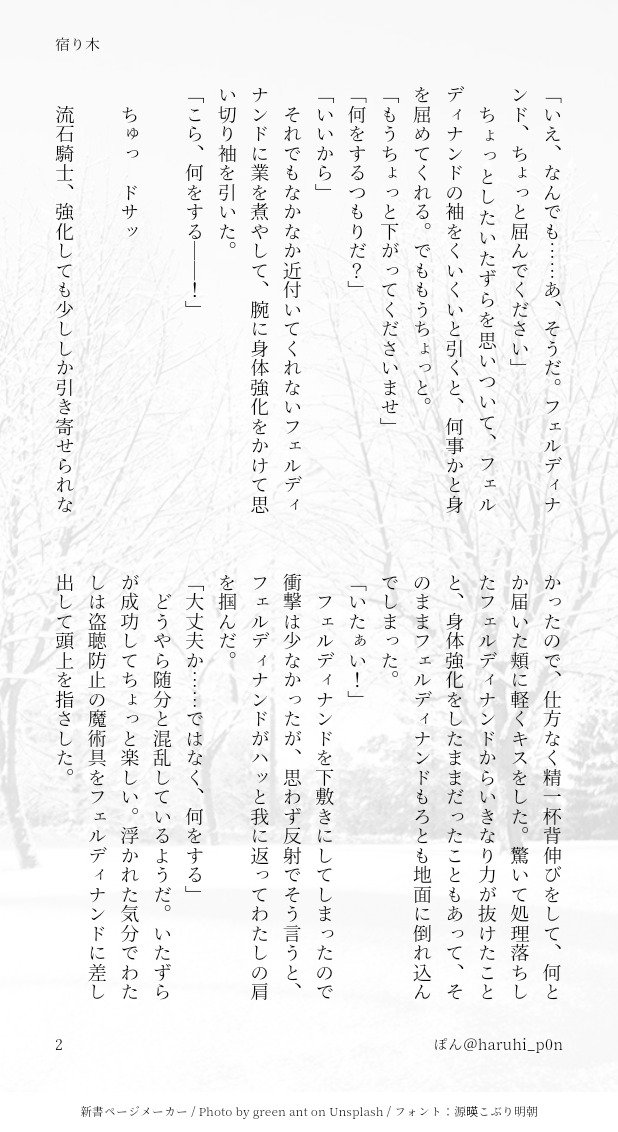 宿り木
「いえ、なんでも……あ、そうだ。フェルディナ
ンド、ちょっと屈んでください」
　ちょっとしたいたずらを思いついて、フェル
ディナンドの袖をくいくいと引くと、何事かと身
を屈めてくれる。でももうちょっと。
「もうちょっと下がってくださいませ」
「何をするつもりだ？」
「いいから」
　それでもなかなか近付いてくれないフェルディ
ナンドに業を煮やして、腕に身体強化をかけて思
い切り袖を引いた。
「こら、何をする――！」
　ちゅっ　ドサッ
　流石騎士、強化しても少ししか引き寄せられな
かったので、仕方なく精一杯背伸びをして、何と
か届いた頬に軽くキスをした。驚いて処理落ちし
たフェルディナンドからいきなり力が抜けたこと
と、身体強化をしたままだったこともあって、そ
のままフェルディナンドもろとも地面に倒れ込ん
でしまった。
「いたぁい！」
　フェルディナンドを下敷きにしてしまったので
衝撃は少なかったが、思わず反射でそう言うと、
フェルディナンドがハッと我に返ってわたしの肩
を掴んだ。
「大丈夫か……ではなく、何をする」
　どうやら随分と混乱しているようだ。いたずら
が成功してちょっと楽しい。浮かれた気分でわた
しは盗聴防止の魔術具をフェルディナンドに差し
出して頭上を指さした。
2
ぽん@haruhi_p0n
新書ページメーカー / Photo by green ant on Unsplash / フォント：源暎こぶり明朝